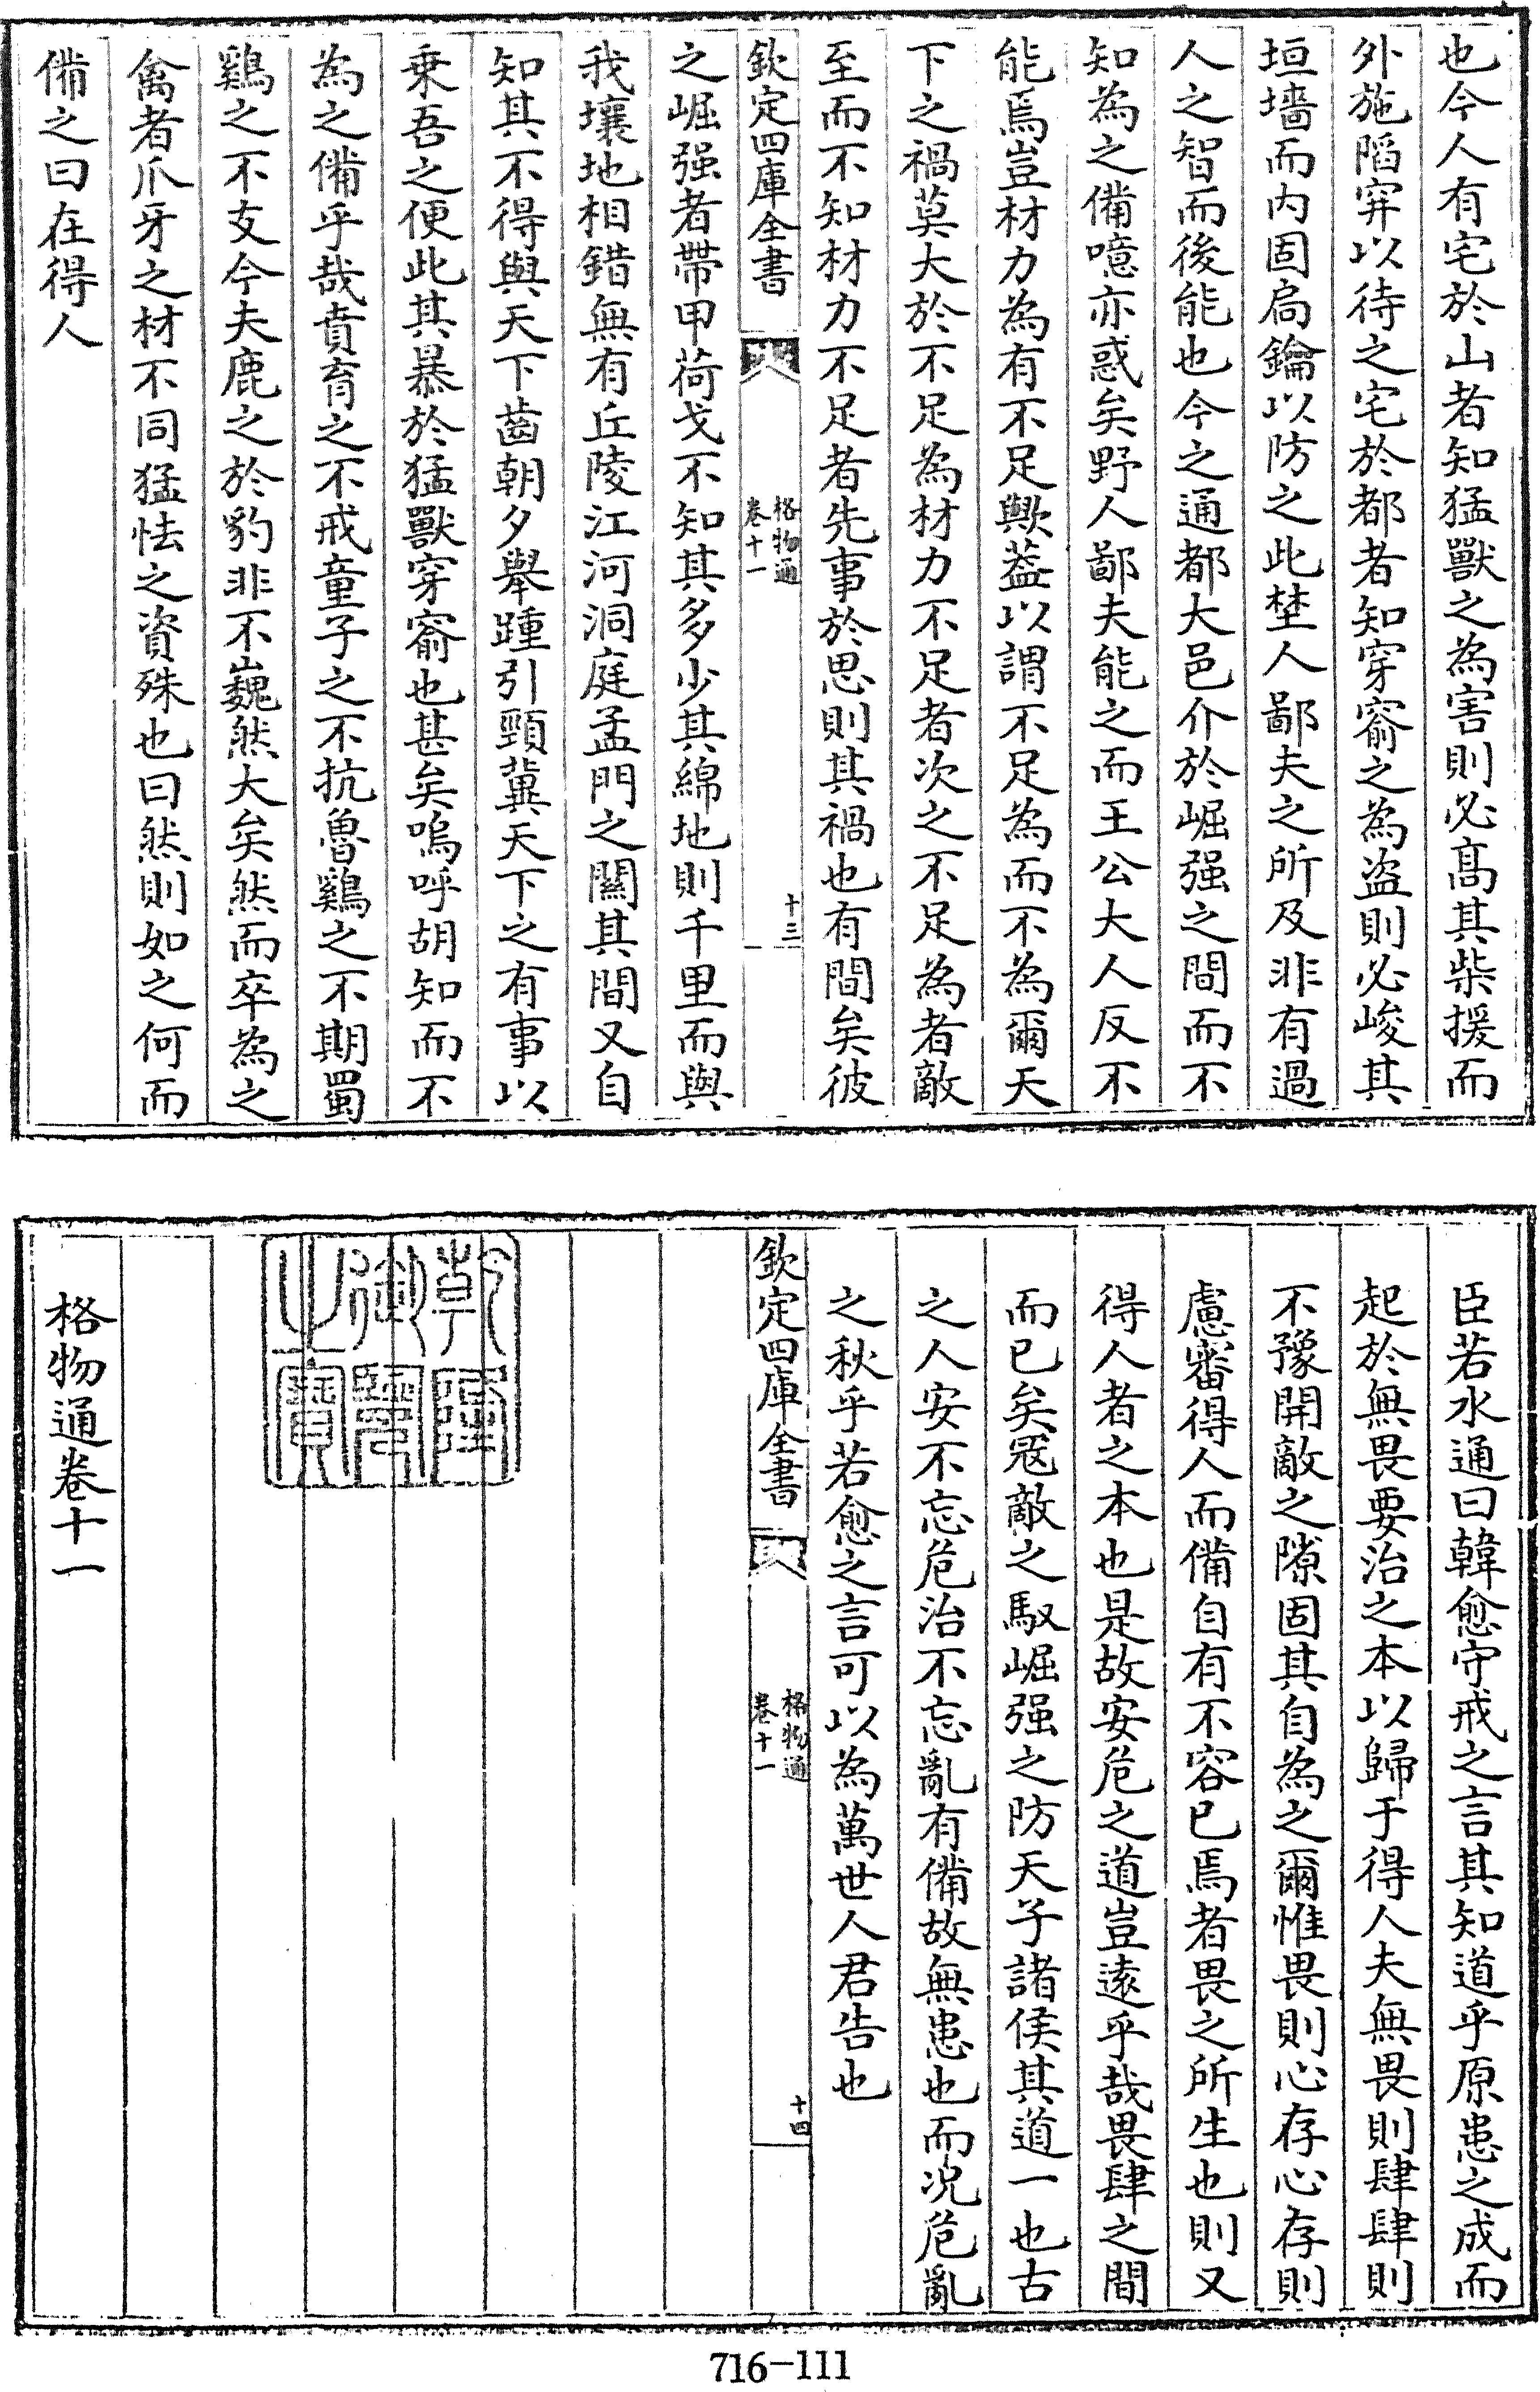 也今人有宅於山者知猛獸之為害則必髙其柴援而
外施陷穽以待之宅於都者知穿窬之為盗則必峻其
垣墻而内固扃鑰以防之此埜人鄙夫之所及非有過
人之智而後能也今之通都大邑介於崛强之間而不
知為之備噫亦惑矣野人鄙夫能之而王公大人反不
能焉豈材力為有不足歟葢以謂不足為而不為爾天
下之禍莫大於不足為材力不足者次之不足為者敵
至而不知材力不足者先事於思則其禍也有間矣彼
欽定四庫全書
格物通
卷十一
十三
之崛强者帶甲荷戈不知其多少其綿地則千里而與
我壤地相錯無有丘陵江河洞庭孟門之闗其間又自
知其不得與天下齒朝夕舉踵引頸冀天下之有事以
乗吾之便此其暴於猛獸穿窬也甚矣嗚呼胡知而不
為之備乎哉賁育之不戒童子之不抗魯鷄之不期蜀
鷄之不支今夫鹿之於豹非不巍然大矣然而卒為之
禽者爪牙之材不同猛怯之資殊也曰然則如之何而
備之曰在得人
臣若水通曰韓愈守戒之言其知道乎原患之成而
起於無畏要治之本以歸于得人夫無畏則肆肆則
不豫開敵之隙固其自為之爾惟畏則心存心存則
慮審得人而備自有不容已焉者畏之所生也則又
得人者之本也是故安危之道豈逺乎哉畏肆之間
而已矣冦敵之馭崛强之防天子諸侯其道一也古
之人安不忘危治不忘亂有備故無患也而况危亂
之秋乎若愈之言可以為萬世人君告也
欽定四庫全書
格物通
卷十一
十四
乾隆御覽之寳
格物通卷十一
716-111